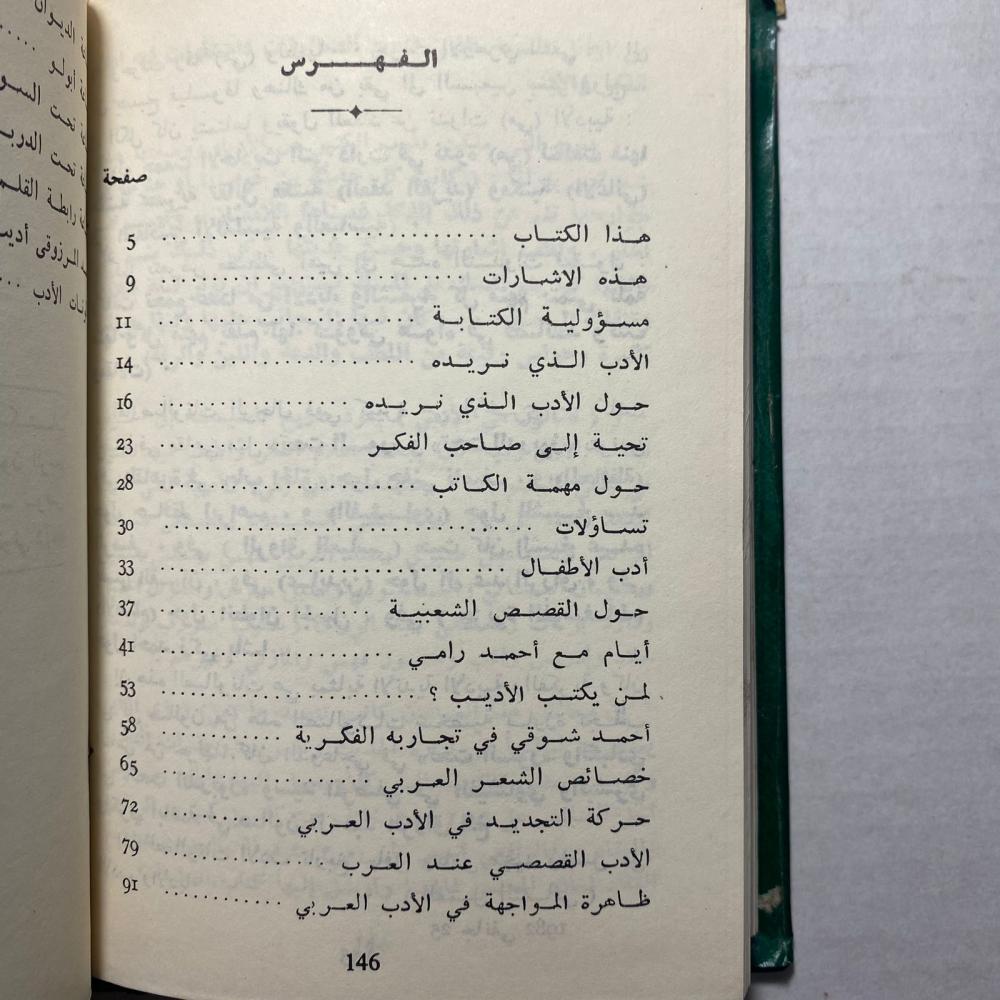 الفهرس
صفحة
هذا الكتاب ........ 5
هذه الاشارات ........ 9
مسؤولية الكتابة ........ 11
الأدب الذي نريده ........ 14
حول الأدب الذي نريده ........ 16
تحية إلى صاحب الفكر ........ 23
حول مهمة الكاتب ........ 28
تساؤلات ........ 30
أدب الأطفال ........ 33
حول القصص الشعبية ........ 37
أيام مع أحمد رامي ........ 41
لمن يكتب الأديب ؟ ........ 53
أحمد شوقي في تجاربه الفكرية ........ 58
خصائص الشعر العربي ........ 65
حركة التجديد في الأدب العربي ........ 72
الأدب القصصي عند العرب ........ 79
ظاهرة المواجهة في الأدب العربي ........ 91
146
الديوان
أبولو ....
تحت السو
تحت الدرب
رابطة القلم
المرزوقي أديب
الأدب ...